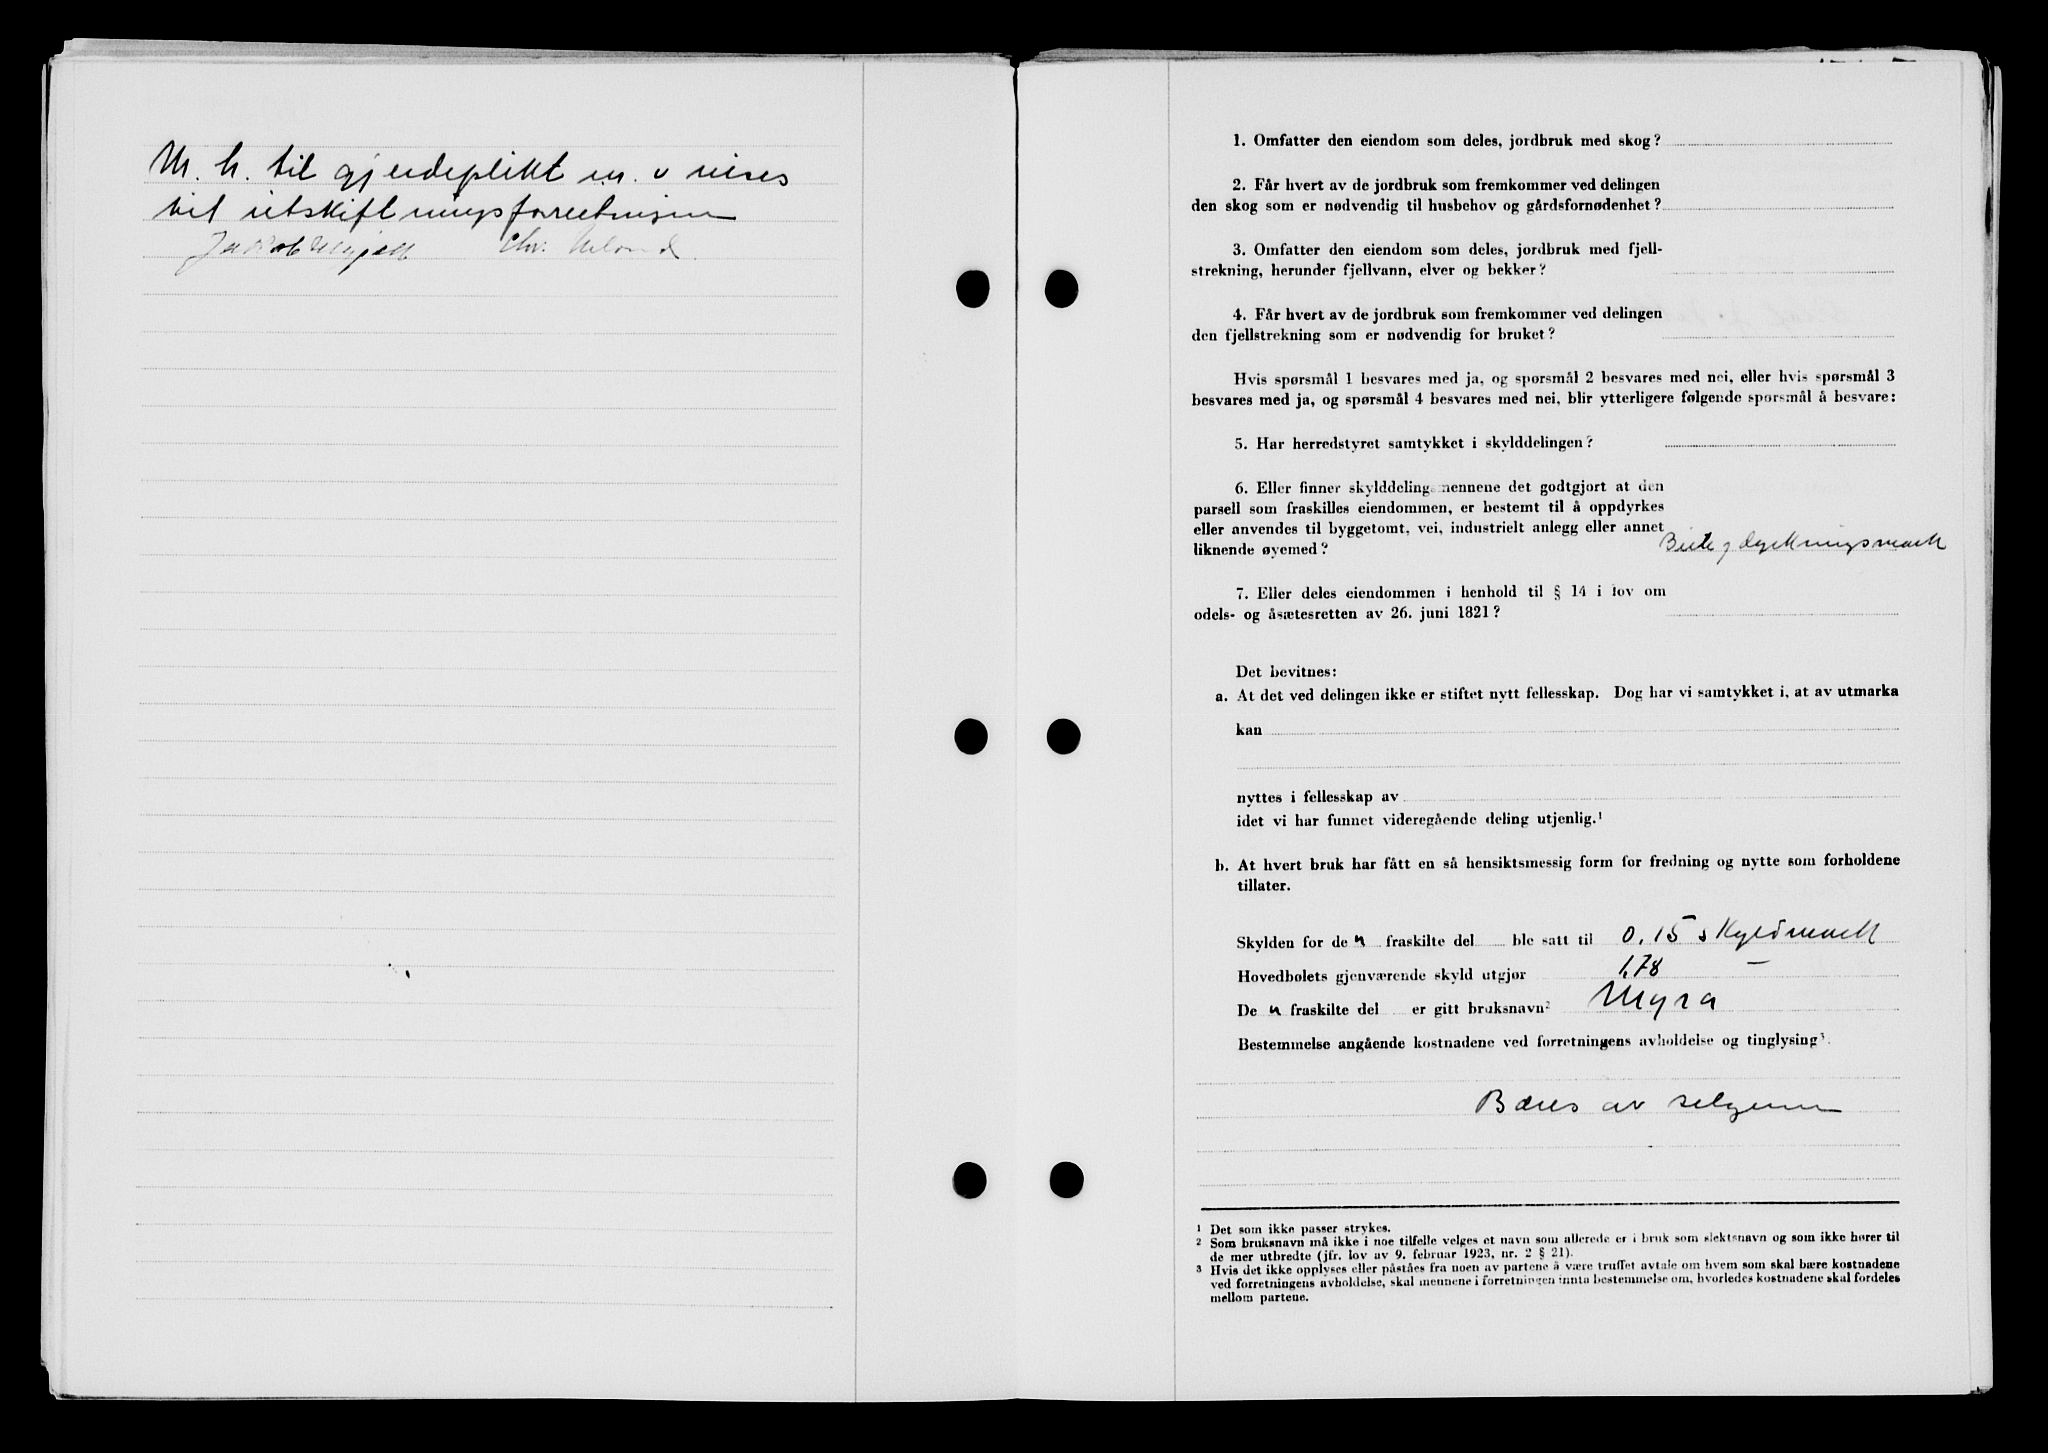 M. h. til gjerdeplikt m. v vises
til utskiftningsforretningen
Chr.
1. Omfatter den eiendom som deles, jordbruk med skog?
2. Får hvert av de jordbruk som fremkommer ved delingen
den skog som er nødvendig til husbehov og gårdsfornødenhet?
3. Omfatter den eiendom som deles, jordbruk med fjell-
strekning, herunder fjellvann, elver og bekker?
4. Får hvert av de jordbruk som fremkommer ved delingen
den fjellstrekning som er nødvendig for bruket?
Hvis spørsmål 1 besvares med ja, og spørsmål 2 besvares med nei, eller hvis spørsmål 3
besvares med ja, og spørsmål 4 besvares med nei, blir ytterligere følgende spørsmål å besvare:
5. Har herredstyret samtykket i skylddelingen?
6. Eller finner skylddelingsmennene det godtgjort at den
parsell som fraskilles eiendommen, er bestemt til å oppdyrkes
eller anvendes til byggetomt, vei, industrielt anlegg eller annet
liknende øyemed? Beite og dyrkningsmark
7. Eller deles eiendommen i henhold til § 14 i lov om
odels- og åsætesretten av 26. juni 1821?
Det bevitnes:
a. At det ved delingen ikke er stiftet nytt fellesskap. Dog har vi samtykket i, at av utmarka
kan
nyttes i fellesskap av
idet vi har funnet videregående deling utjenlig.¹
b. At hvert bruk har fått en så hensiktsmessig form for fredning og nytte som forholdene
tillater.
Skylden for de n fraskilte del ble satt til 0,15 skyldmark
Hovedbølets gjenværende skyld utgjør 1,78 —
De n fraskilte del er gitt bruksnavn² Myra
Bestemmelse angående kostnadene ved forretningens avholdelse og tinglysing³.
Bæres av selgeren
¹ Det som ikke passer strykes.
² Som bruksnavn må ikke i noe tilfelle velges et navn som allerede er i bruk som slektsnavn og som ikke hører til
de mer utbredte (jfr. lov av 9. februar 1923, nr. 2 § 21).
³ Hvis det ikke opplyses eller påståes fra noen av partene å være truffet avtale om hvem som skal bære kostnadene
ved forretningens avholdelse, skal mennene i forretningen innta bestemmelse om, hvorledes kostnadene skal fordeles
mellom partene.